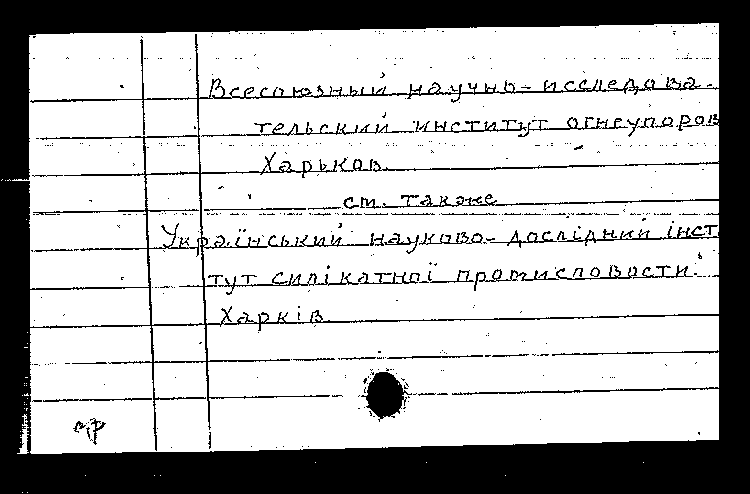 Всесоюзный научно-исследова-
тельский институт огнеупоров
Харьков.
см. также
Український науково-дослідний інст
тут силікатної промисловости.
Харків.